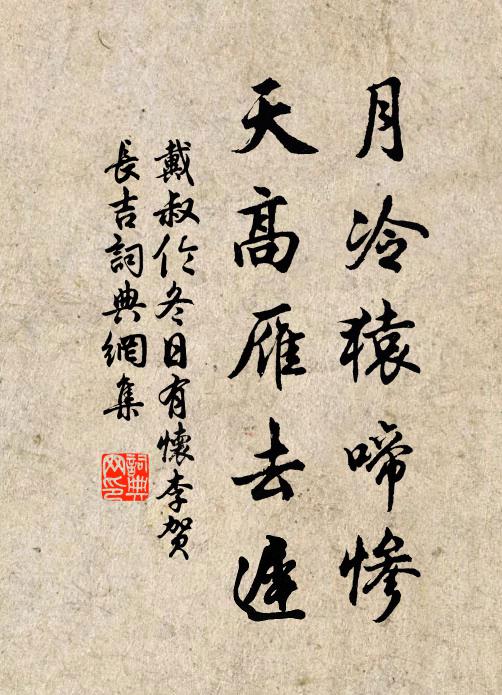 月冷猿啼慘
天高雁去遲
戴叔伦冬日有懷李贺
長吉詞典網集
詞典
网印